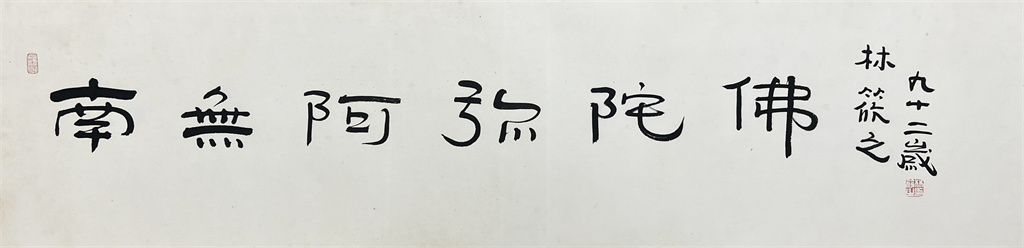 南無阿弥陀佛
九十二歲
林筱之